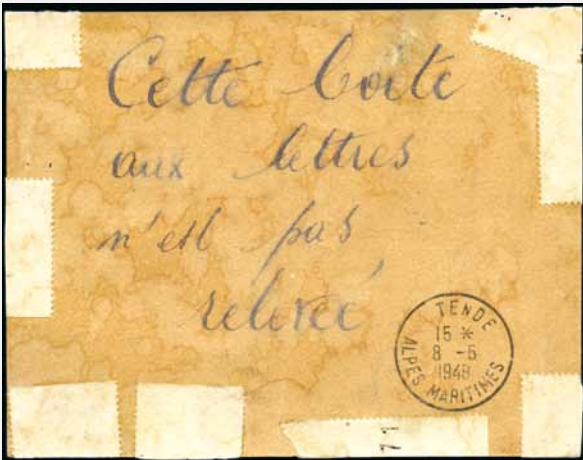 Cette boite
aux lettres
n'est pas
relevée
TENDE
15 *
8 -6
1948
ALPES MARITIMES